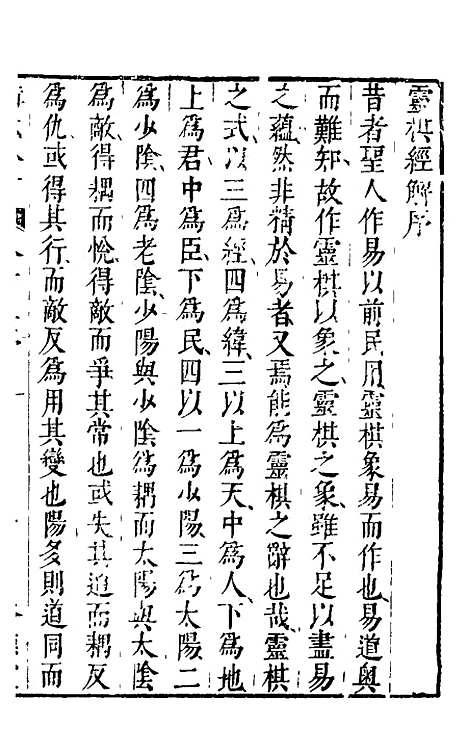 靈棋經解序
昔者聖人作易以前民用靈棋象易而作也易道奧
而難知故作靈棋以象之靈棋之象雖不足以盡易
之蘊然非精於易者又焉能為靈棋之辭也哉靈棋
之式以三為經四為緯三以上為天中為人下為地
上為君中為臣下為民四以一為少陽三為太陽二
為少陰四為老陰少陽與少陰為耦而太陽與太陰
為敵得耦而悅得敵而爭其常也或失其道而耦反
為仇或得其行而敵反為用其變也陽多則道同而